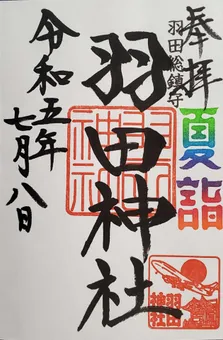 奉拝
羽田総鎮守
夏詣
羽田神社
令和五年
七月八日
羽田
神社